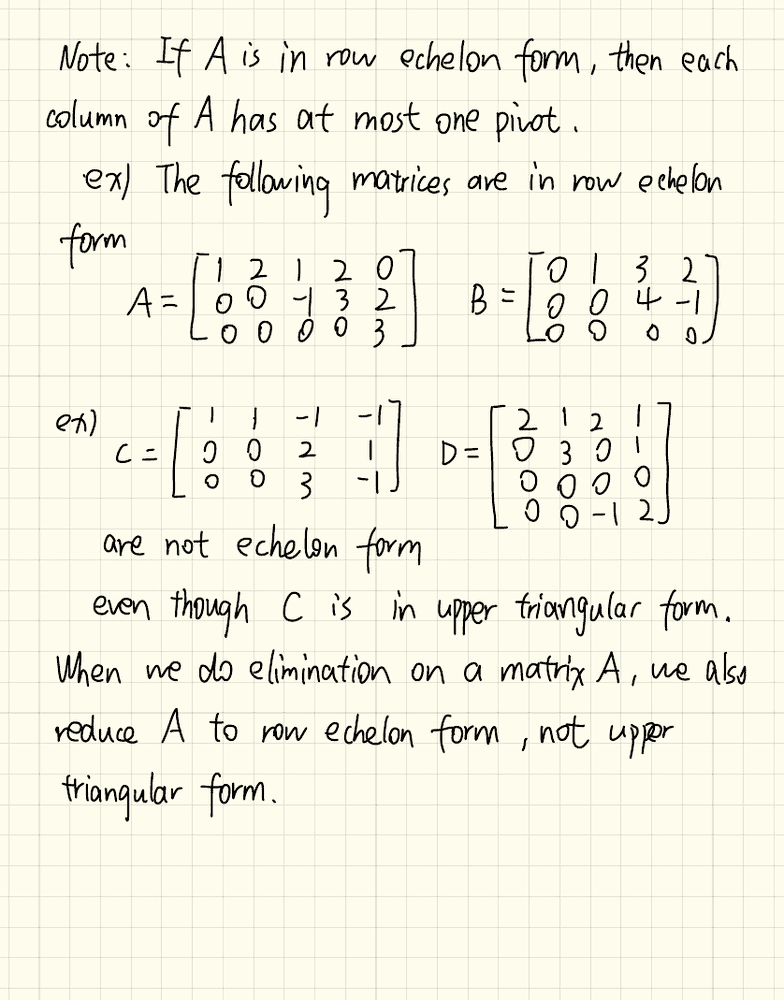 Note: If A is in row echelon form, then each
column of A has at most one pivot.
ex) The following matrices are in row echelon
form
A = [1 2 1 2 0
0 0 -1 3 2
0 0 0 0 3]
B = [0 1 3 2
0 0 4 -1
0 0 0 0]
ex)
C = [1 1 -1 -1
0 0 2 1
0 0 3 -1]
D = [2 1 2 1
0 3 0 1
0 0 0 0
0 0 -1 2]
are not echelon form
even though C is in upper triangular form.
When we do elimination on a matrix A, we also
reduce A to row echelon form, not upper
triangular form.